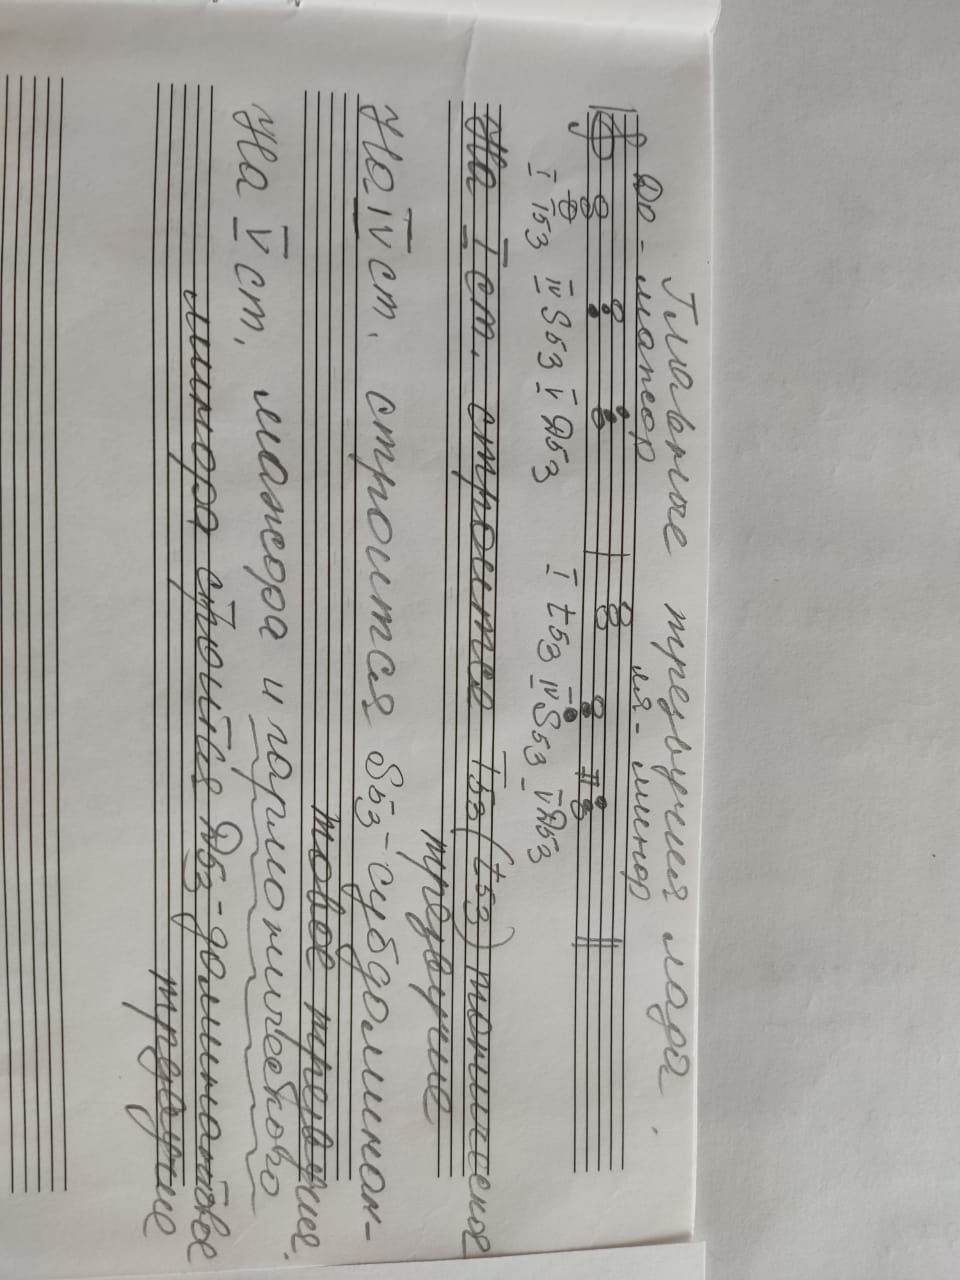 Главные трезвучия лада.
До-мажор ля-минор
I T53 IV S53 V D53 I t53 IV S53 V D53
На I ст. строится T53 (t53) тоническое
трезвучие
На IV ст. строится S53-субдоминан-
товое трезвучия.
На V ст. мажора и гармонического
минора строится D53-доминантовое
трезвучие